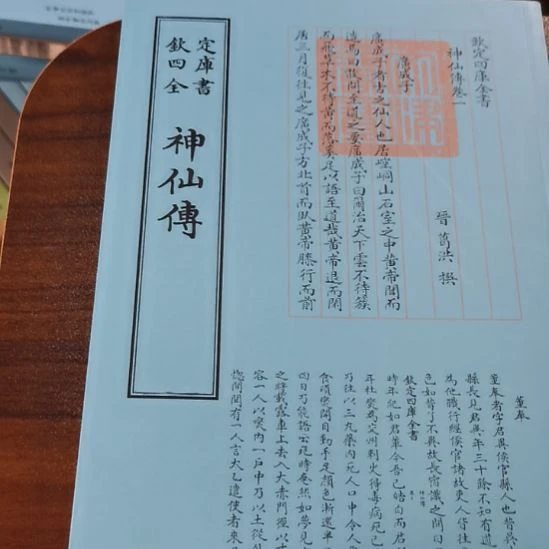 欽定
四庫
全書
神仙傳
欽定四庫全書
神仙傳卷一
晉 葛洪 撰
廣成子
廣成子者古之仙人也居崆峒山石室之中黃帝聞而
造焉曰敢問至道之要廣成子曰爾治天下雲不待簇
而飛草木不待黃而落奚足以語至道哉黃帝退而閑
居三月復往見之廣成子方北首而臥黃帝膝行而前
董奉
董奉者字君異侯官縣人也昔吳
縣長見奉年三十餘不知有道
為他職行經侯官諸故吏人皆往
色如昔了不異故長宿識之問曰
欽定四庫全書
時年紀如君輩今吾已皓白而君
年杜燮為交州刺史得毒病死已
乃往以三丸藥內死人口中令人
食頃燮開目動手足顏色漸還半
四日乃能語云死時奄然如夢見
之將載露車上去入大赤門徑以
容一人以燮內一戶中乃以土從外
惚間聞有一人言太乙遣使者來